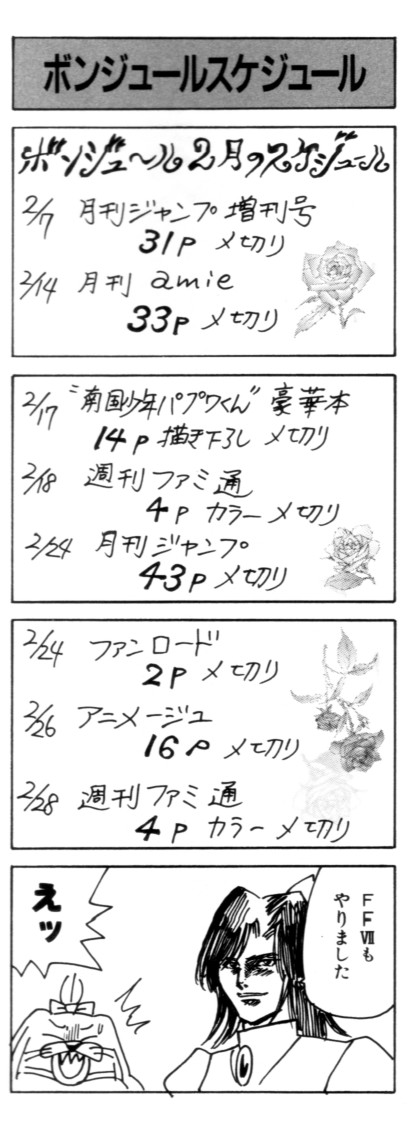 ボンジュールスケジュール
ボンジュ〜ル2月のスケジュール
2/7 月刊ジャンプ増刊号
31P 〆切り
2/14 月刊 amie
33P 〆切り
2/17 "南国少年パプワくん" 豪華本
14P 描き下ろし 〆切り
2/18 週刊ファミ通
4P カラー 〆切り
2/24 月刊ジャンプ
43P 〆切り
2/24 ファンロード
2P 〆切り
2/26 アニメージュ
16P 〆切り
2/28 週刊ファミ通
4P カラー 〆切り
FFⅦも
やりました
えッ